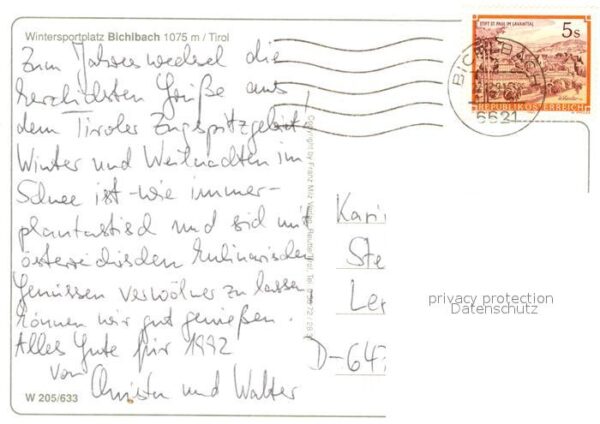 Wintersportplatz Bichlbach 1075 m / Tirol
Zum Jahreswechsel die
herzlichsten Grüße aus
dem Tiroler Zugspitzgebiet!
Winter und Weihnachten im
Schnee ist - wie immer -
phantastisch und sich mit
österreichischen kulinarischen
Genüssen verwöhnen zu lassen
können wir gut genießen.
Alles Gute für 1992
von Christa und Walter
W 205/633
Copyright by Franz Milz Verlag, Reutte/Tirol Tel.
STIFT ST. PAUL IM LAVANTTAL
5 S
REPUBLIK ÖSTERREICH
BICHLBACH
6621
Kari
Ste
Le
D-647
privacy protection
Datenschutz